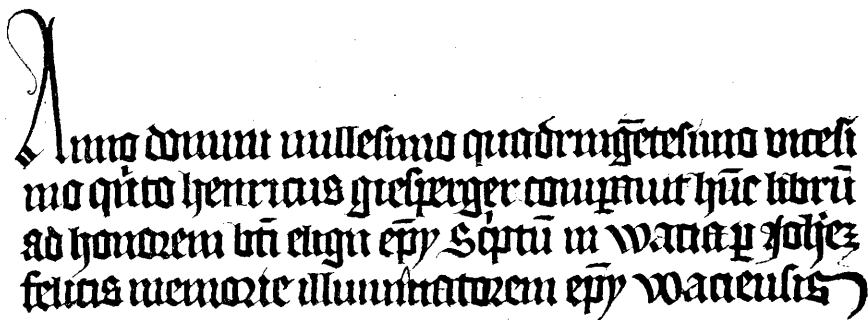 Anno domini millesimo quadringētesimo vicesi
mo qͥnto henricus giesperger comꝑauit hūc librū
ad honorem bti̅ eligii ep̅y Scͥptū in Wacia ꝑ Joħez
felicis memorie illuminatorem ep̅y Waciensis